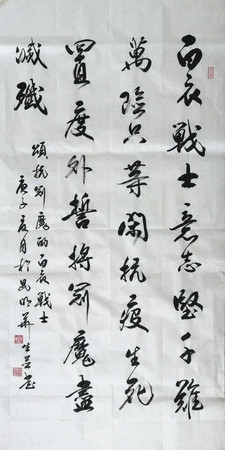 白衣戰士意志堅千難
萬險只等閑抗疫生死
置度外誓將冠魔盡
滅殲
頌抗冠魔的白衣戰士
庚子夏月於昆明華生